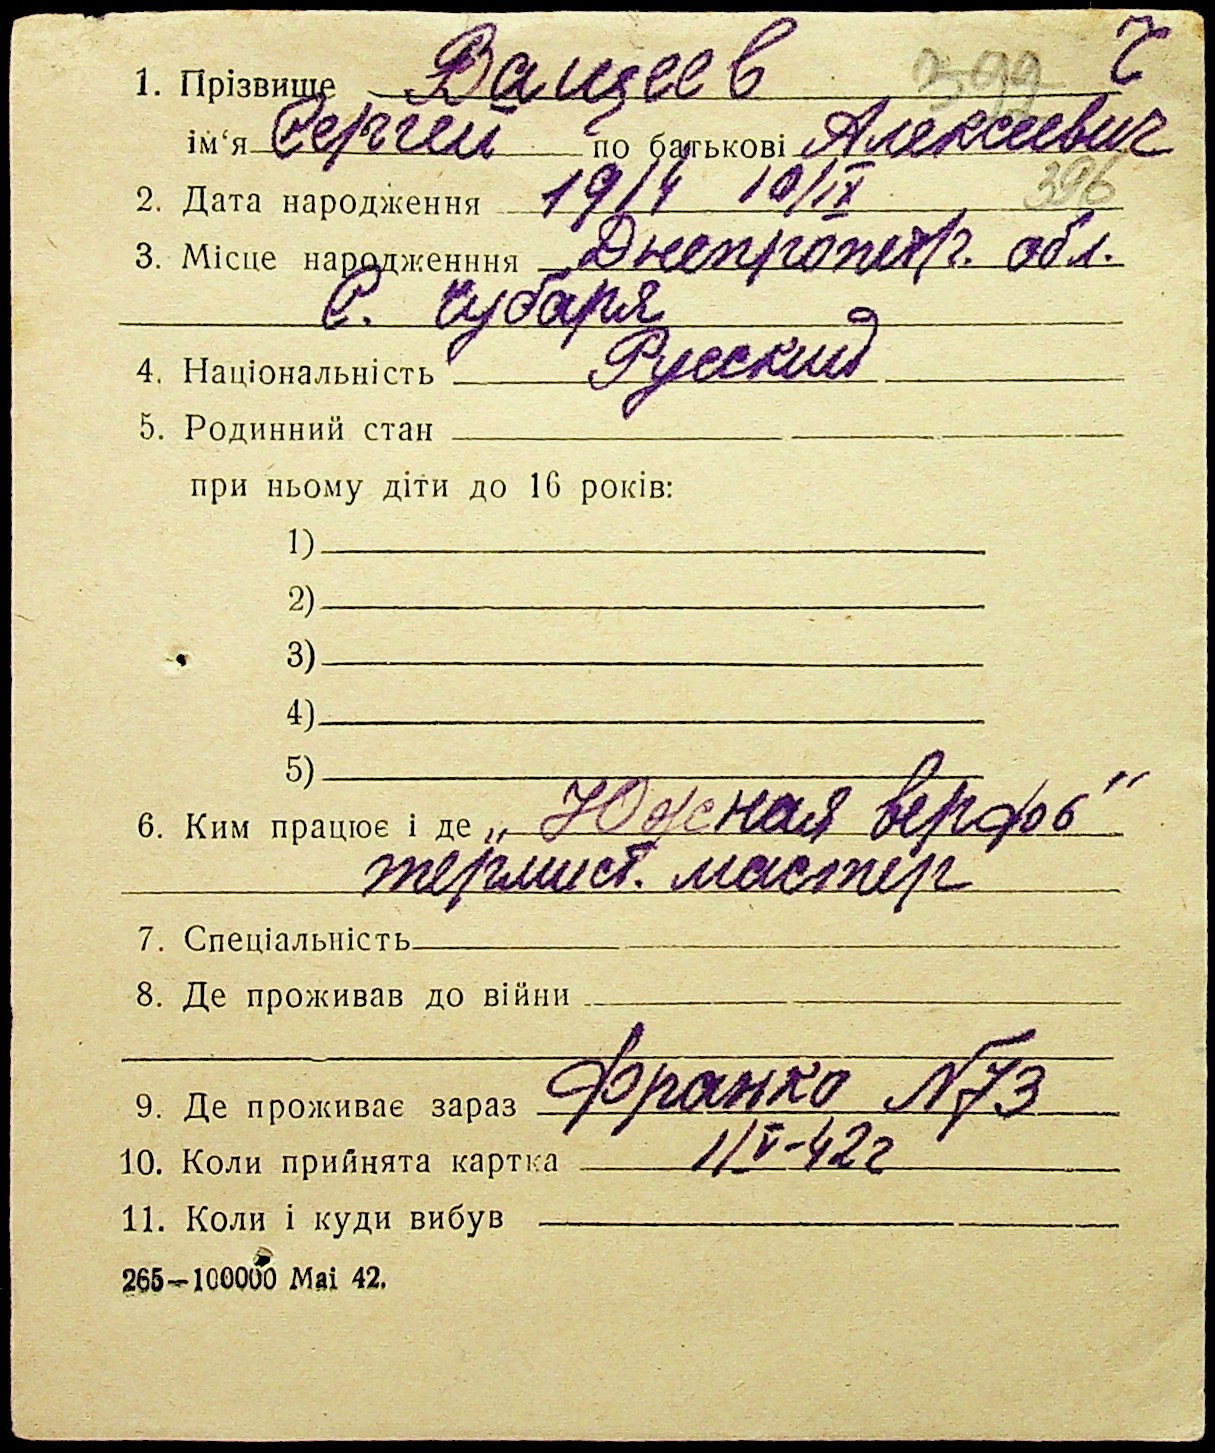 1. Прізвище Ващеев 399 Ч
ім‘я Сергей по батькові Алексеевич
2. Дата народження 1914 10/IX 396
3. Місце народженння Днепропетр. обл.
с. Чубаря
4. Національність Русский
5. Родинний стан
при ньому діти до 16 років:
1)
2)
3)
4)
5)
6. Ким працює і де „Южная верфь"
термист. мастер
7. Спеціальність
8. Де проживав до війни
9. Де проживає зараз Франко N 73
10. Коли прийнята картка 1/V-42 г
11. Коли і куди вибув
265—100000 Mai 42.